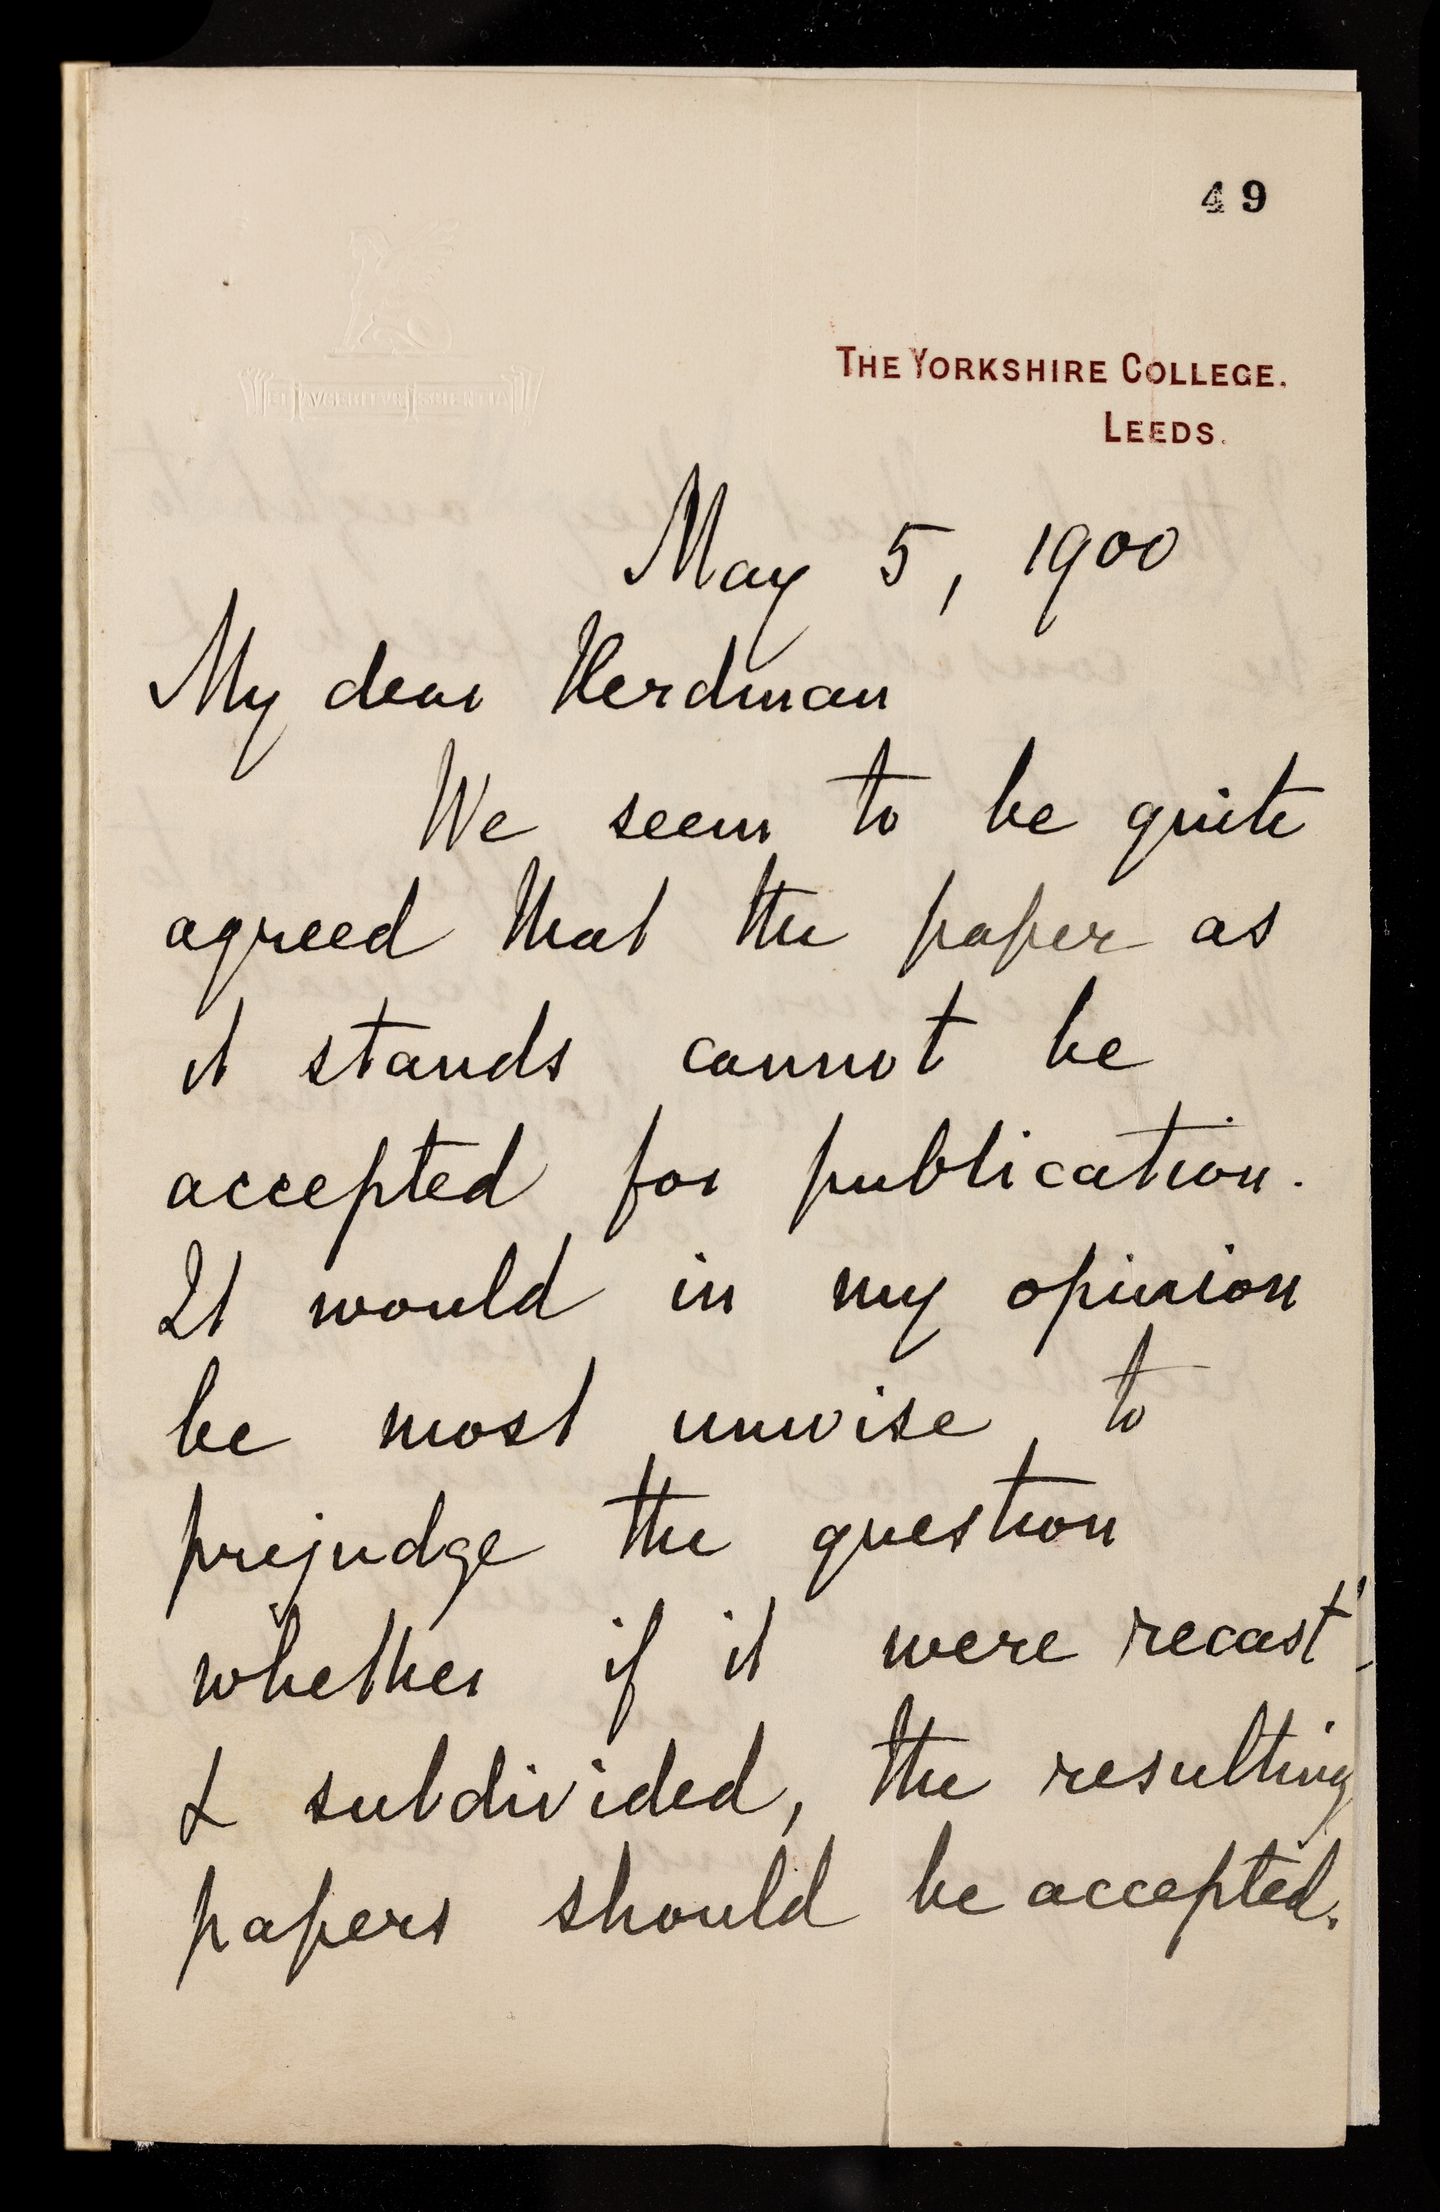 49
ET AVGEBITVR SCIENTIA
THE YORKSHIRE COLLEGE.
LEEDS.
May 5, 1900
My dear Herdman
We seem to be quite
agreed that the paper as
it stands cannot be
accepted for publication.
It would in my opinion
be most unwise to
prejudge the question
whether if it were recast
& subdivided, the resulting
papers should be accepted.